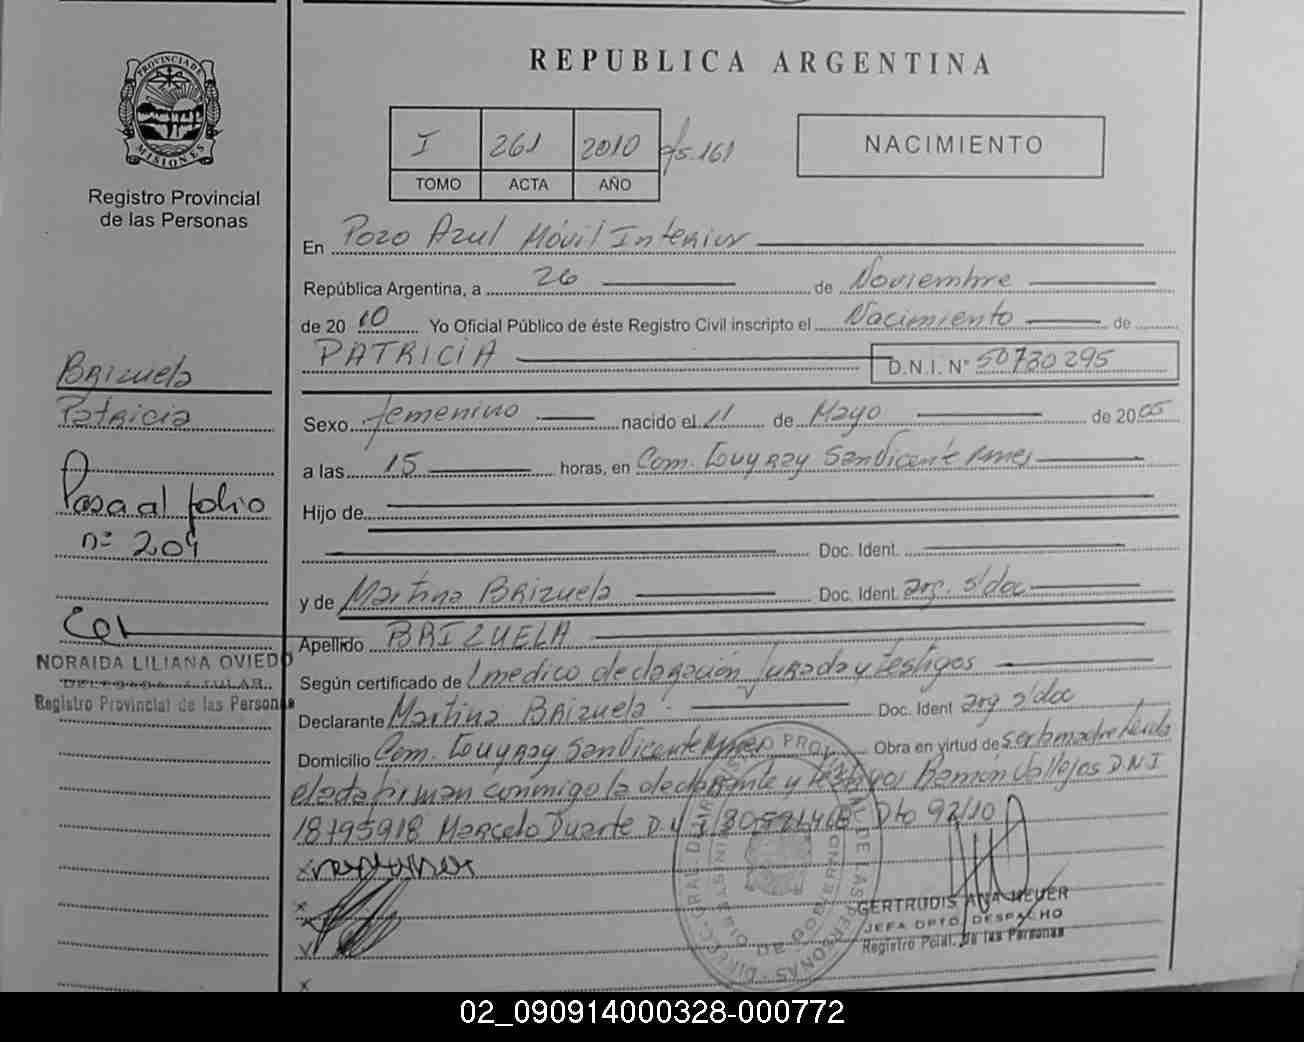 REPUBLICA ARGENTINA
PROVINCIA DE
MISIONES
Registro Provincial
de las Personas
I 261 2010 fs. 161
TOMO ACTA AÑO
NACIMIENTO
En Pozo Azul Móvil Interior
República Argentina, a 26 de Noviembre
de 2010 Yo Oficial Público de éste Registro Civil inscripto el Nacimiento de
PATRICIA D.N.I. Nº 50730295
Brizuela
Patricia
Pasa al folio
nº 204
NORAIDA LILIANA OVIEDO
DELEGADA TITULAR
Registro Provincial de las Personas
Sexo femenino nacido el 11 de Mayo de 2005
a las 15 horas, en Com. San Vicente
Hijo de
Doc. Ident.
y de Martina Brizuela Doc. Ident. arg. s/doc
Apellido BRIZUELA
Según certificado de 1 medico declaración Jurada y testigos
Declarante Martina Brizuela Doc. Ident arg s/doc
Domicilio Com. San Vicente Obra en virtud de ser la madre
firman conmigo la declarante y testigos Ramón Vallejos D.N.I
18795918 Marcelo Duarte D.N.I Dto 92/10
x
x
x
x
GERTRUDIS ANA MEUER
JEFA DPTO. DESPACHO
Registro Pcial. de las Personas
02_090914000328-000772